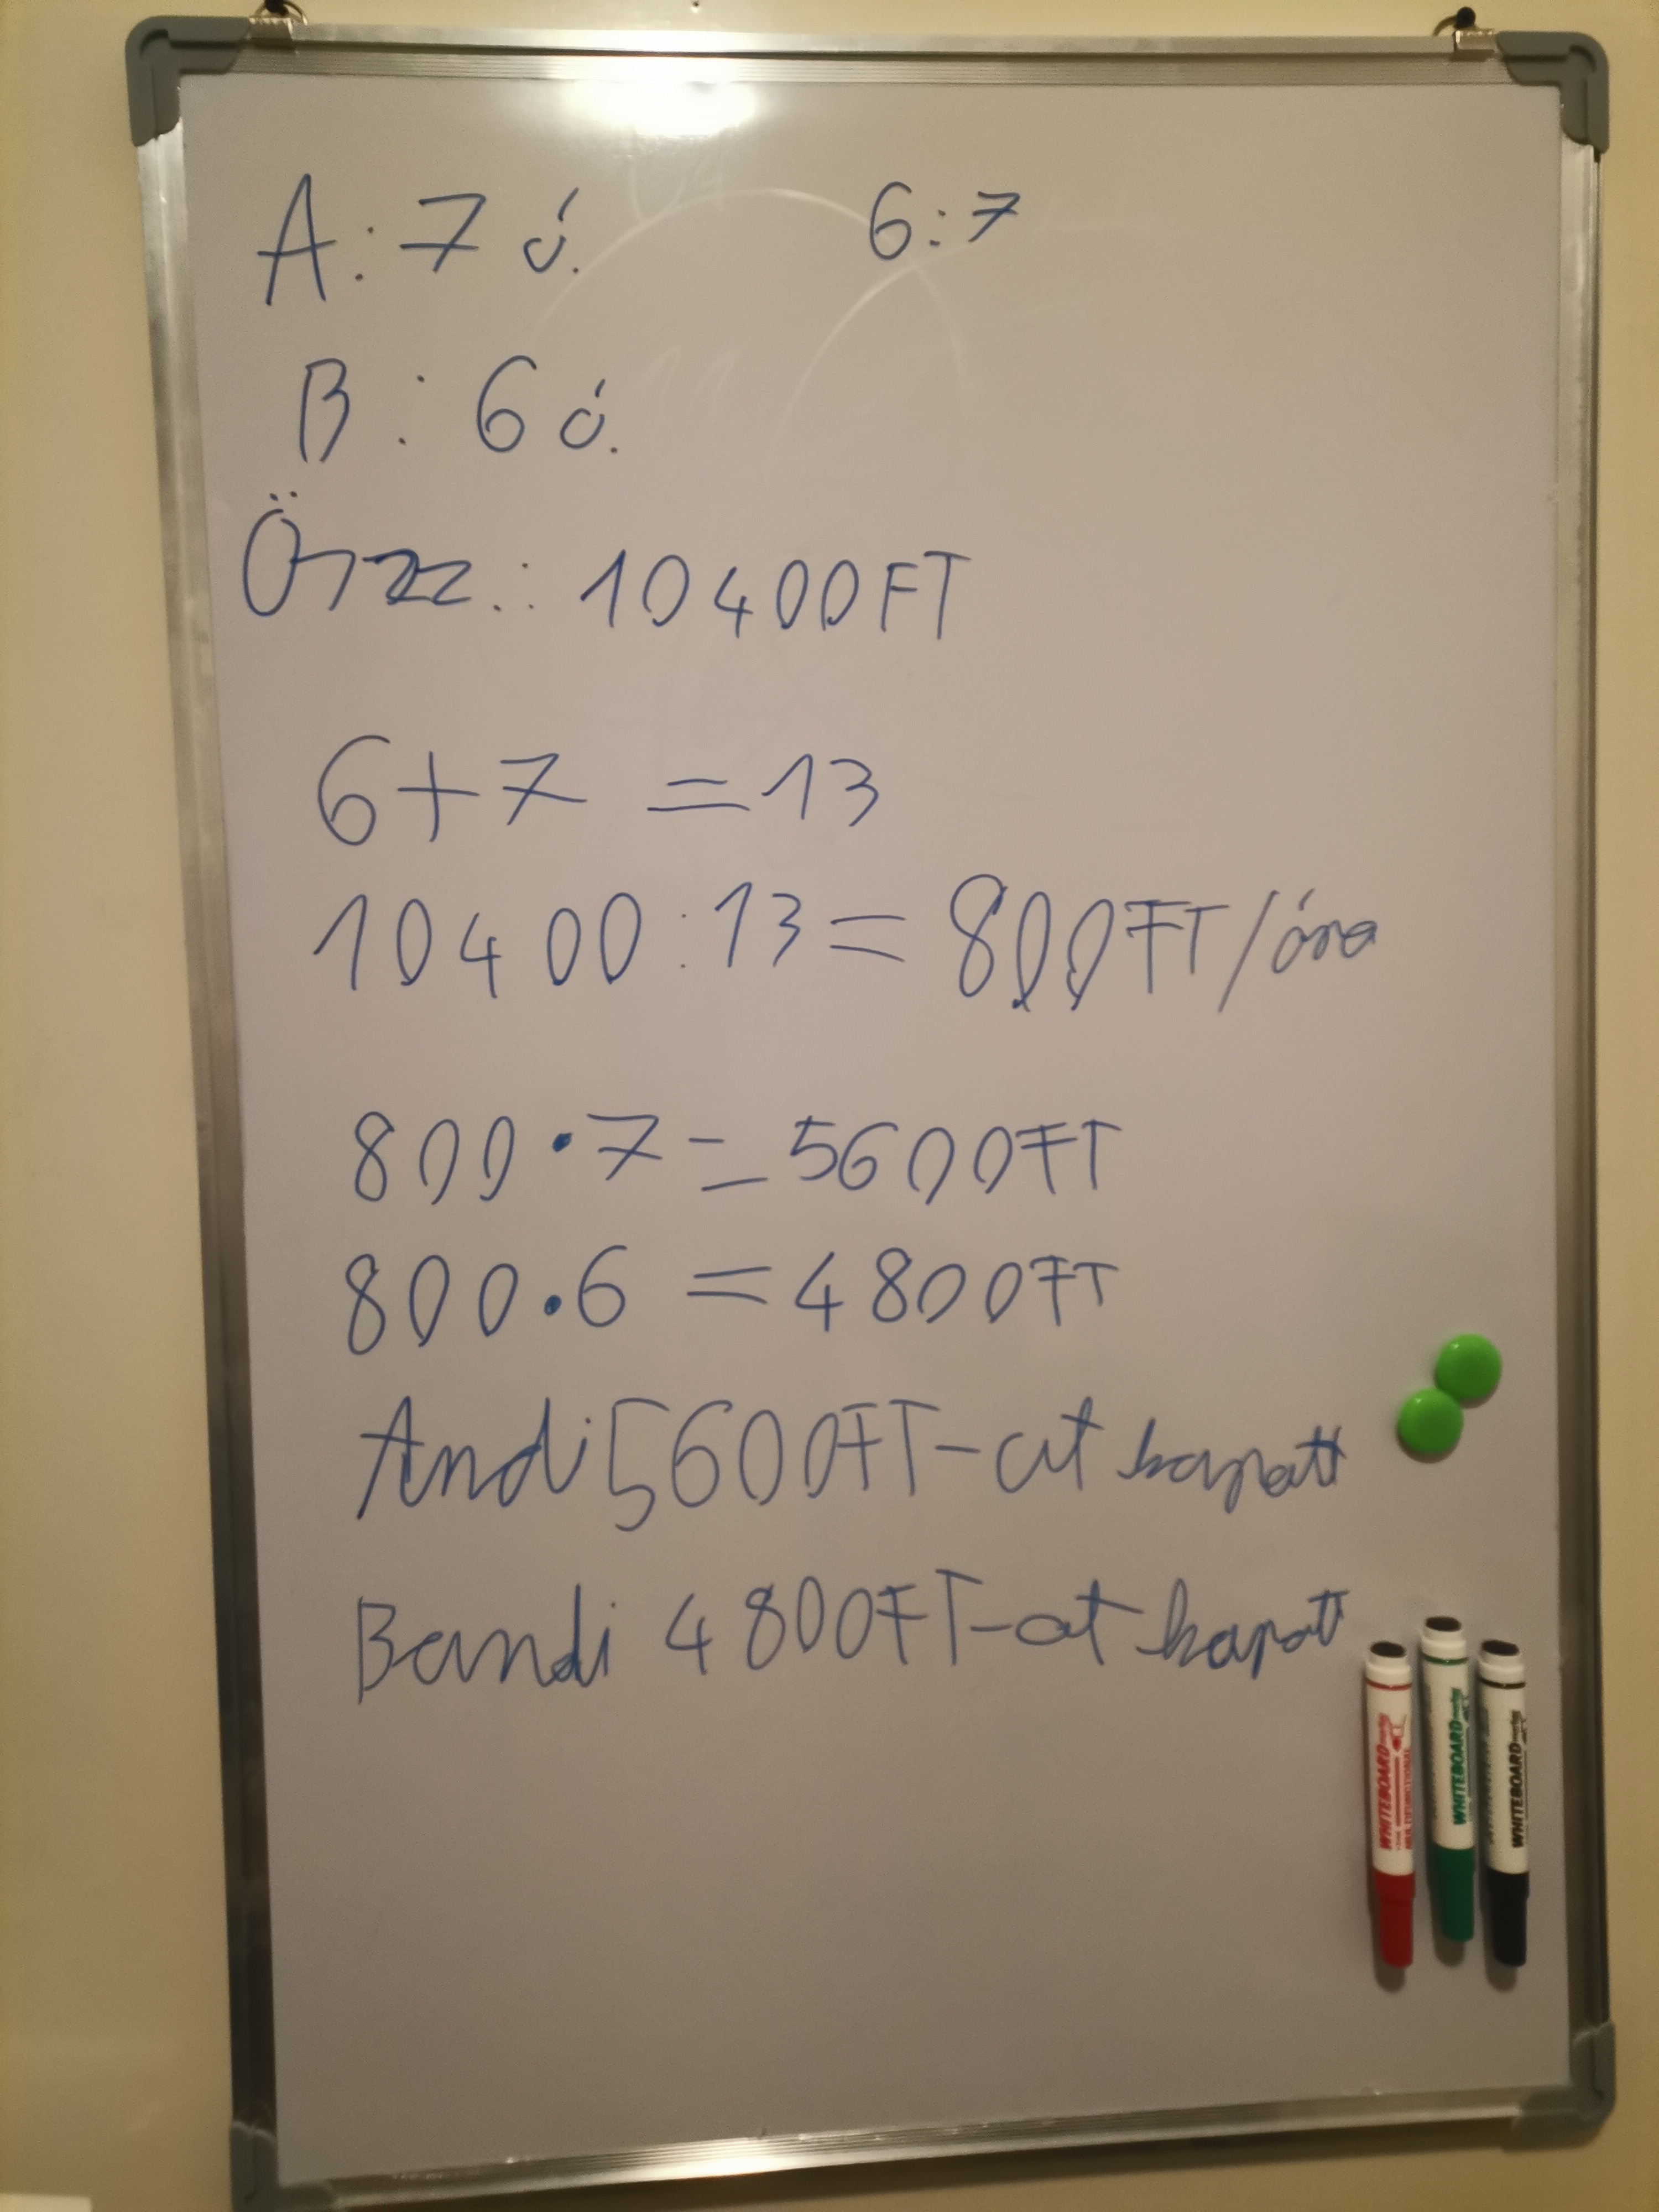 A: 7 ó. 6:7
B: 6 ó.
Össz.: 10400FT
6+7 = 13
10400:13 = 800FT/óra
800·7 = 5600FT
800·6 = 4800FT
Andi 5600FT-at kapott
Bandi 4800FT-at kapott
WHITEBOARD marker
WHITEBOARD marker
WHITEBOARD marker